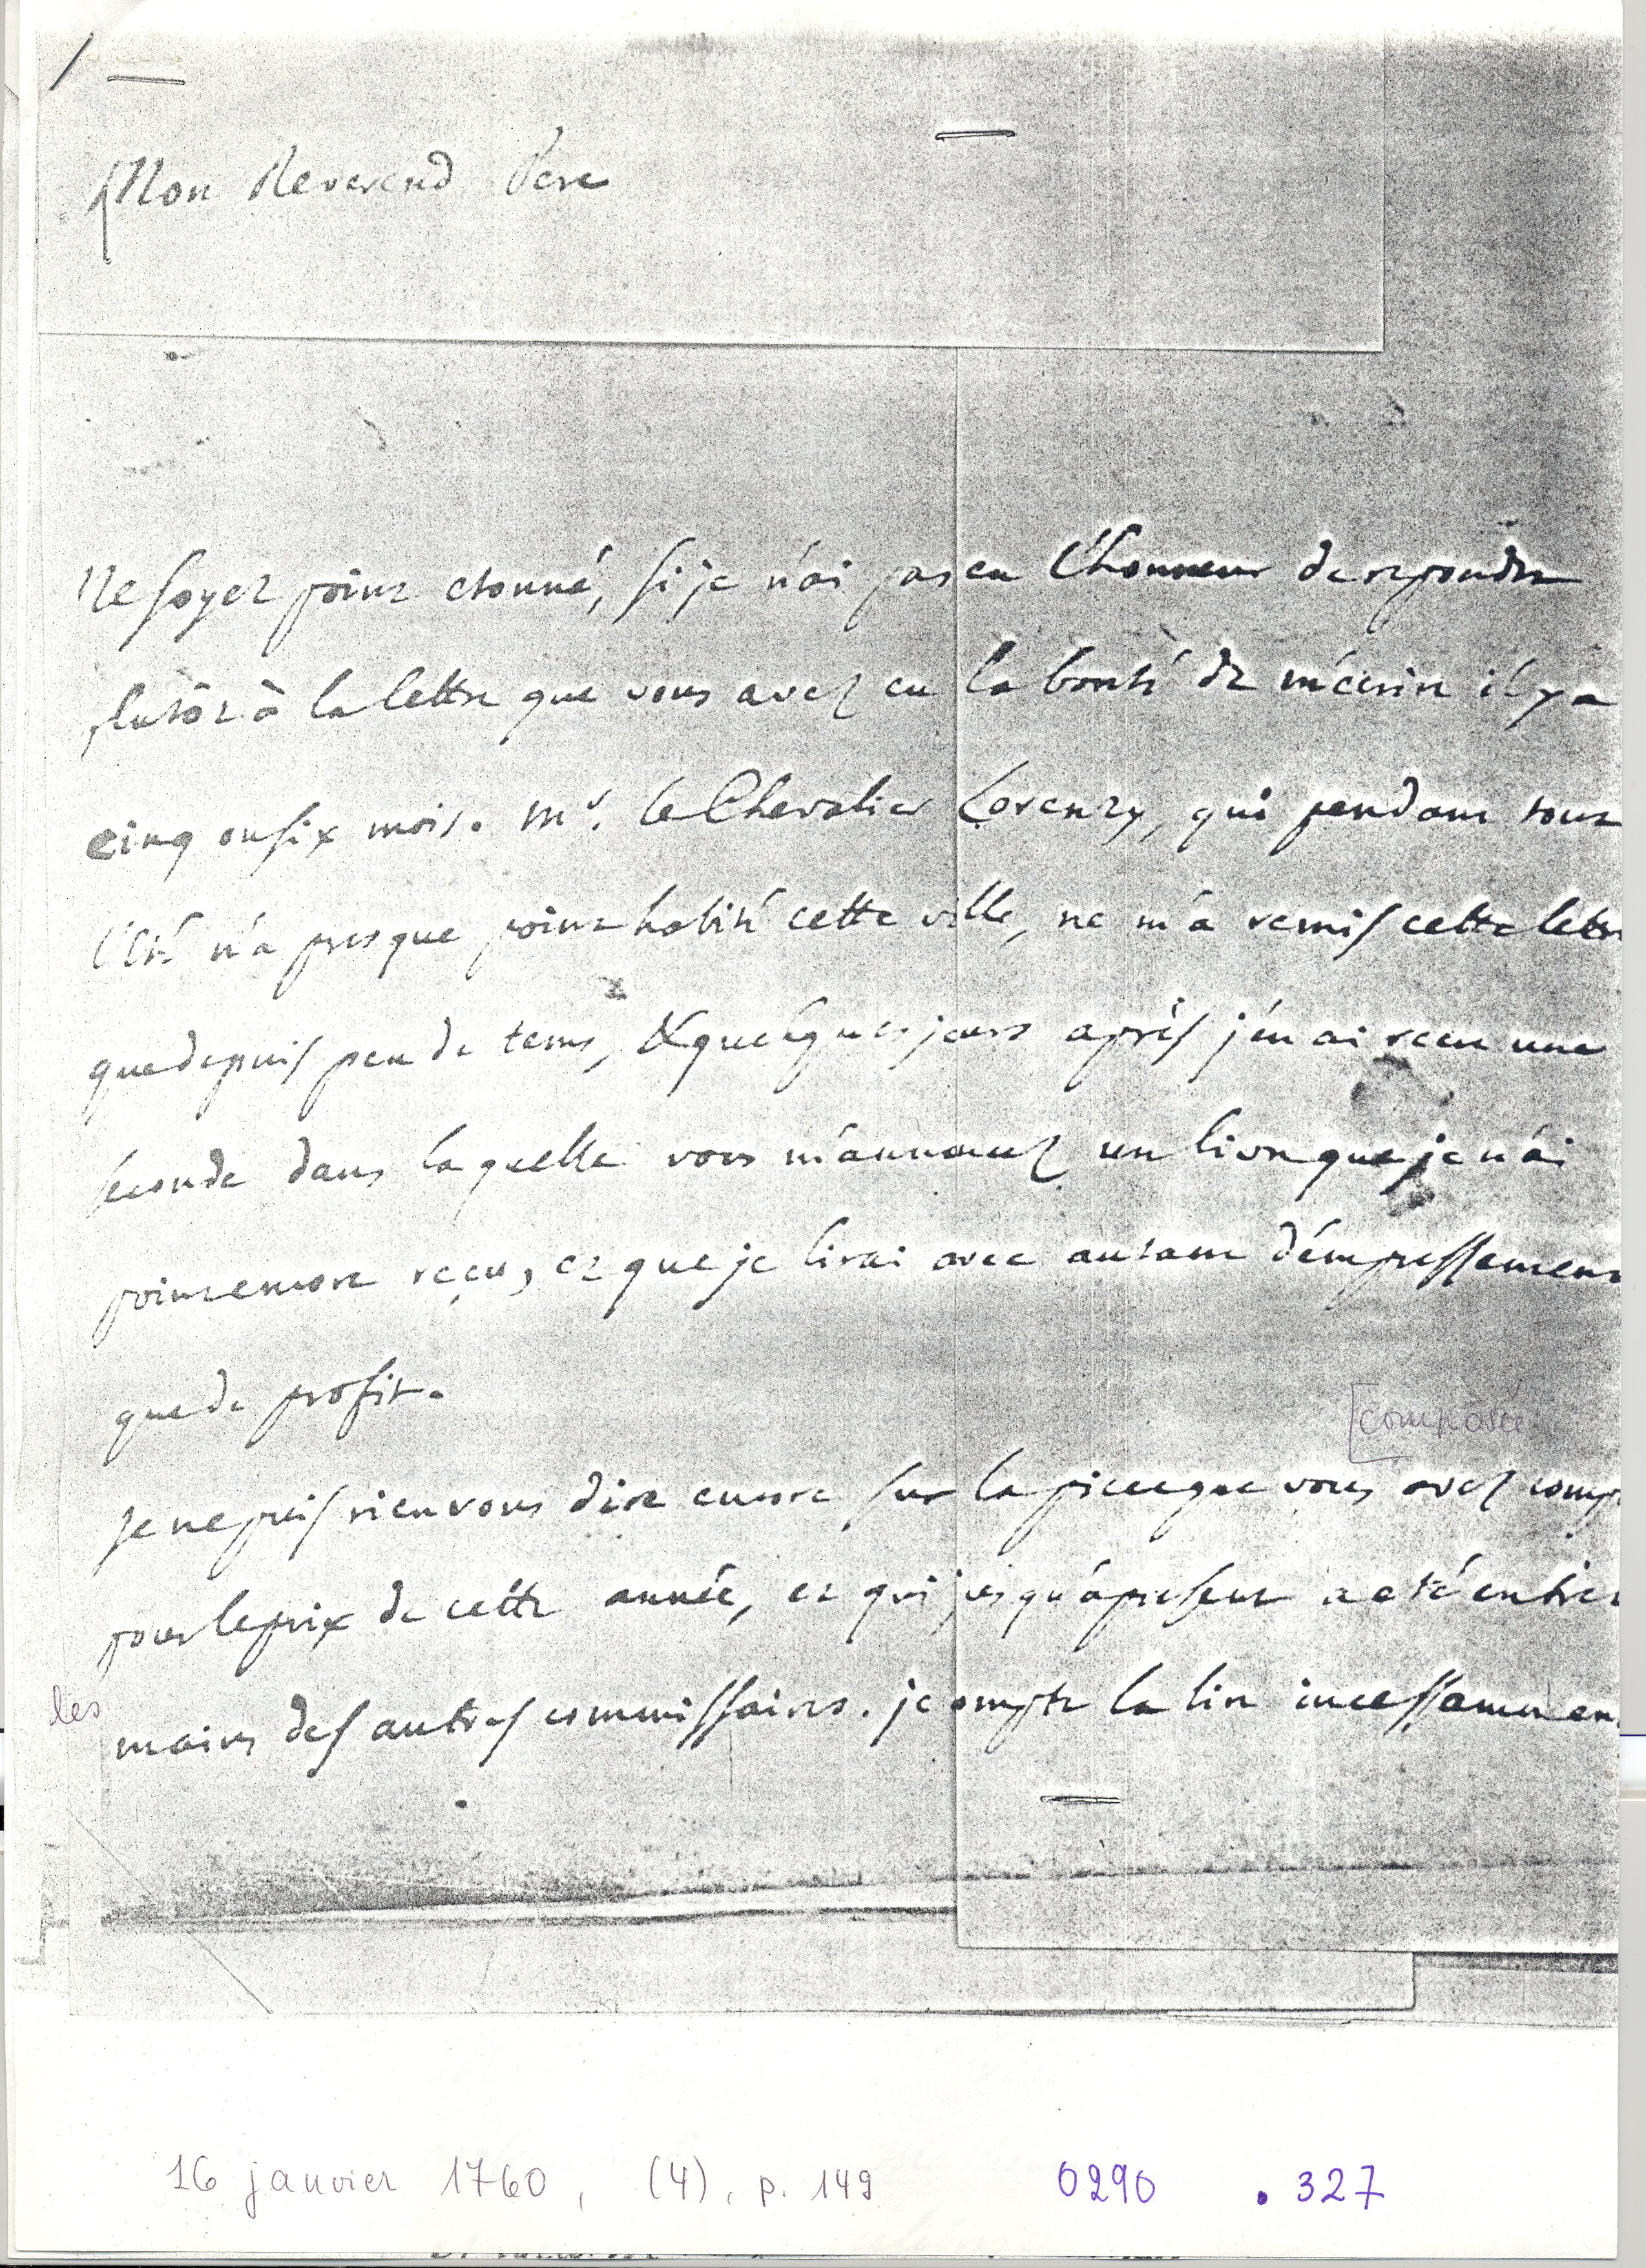 Mon Reverend Pere
Ne soyez point etonné, si je n'ai pas eu l'honneur de repondre
plutôt à la lettre que vous avez eu la bonté de m'ecrire il y a
cinq ou six mois. Mr. le Chevalier Lorenzy, qui pendant tout
l'Eté n'a presque point habité cette ville, ne m'a remis cette lettre
que depuis peu de tems, & quelques jours après j'en ai recu une
seconde dans laquelle vous m'annoncez un livre que je n'ai
point encore reçu, et que je lirai avec autant d'empressement
que de profit.
[composée
Je ne puis rien vous dire encore sur la piece que vous avez comp
pour le prix de cette année, et qui jusqu'à present a eté entre
les
mains des autres commissaires. je compte la lire incessamment
16 janvier 1760, (4), p. 149 0290 . 327